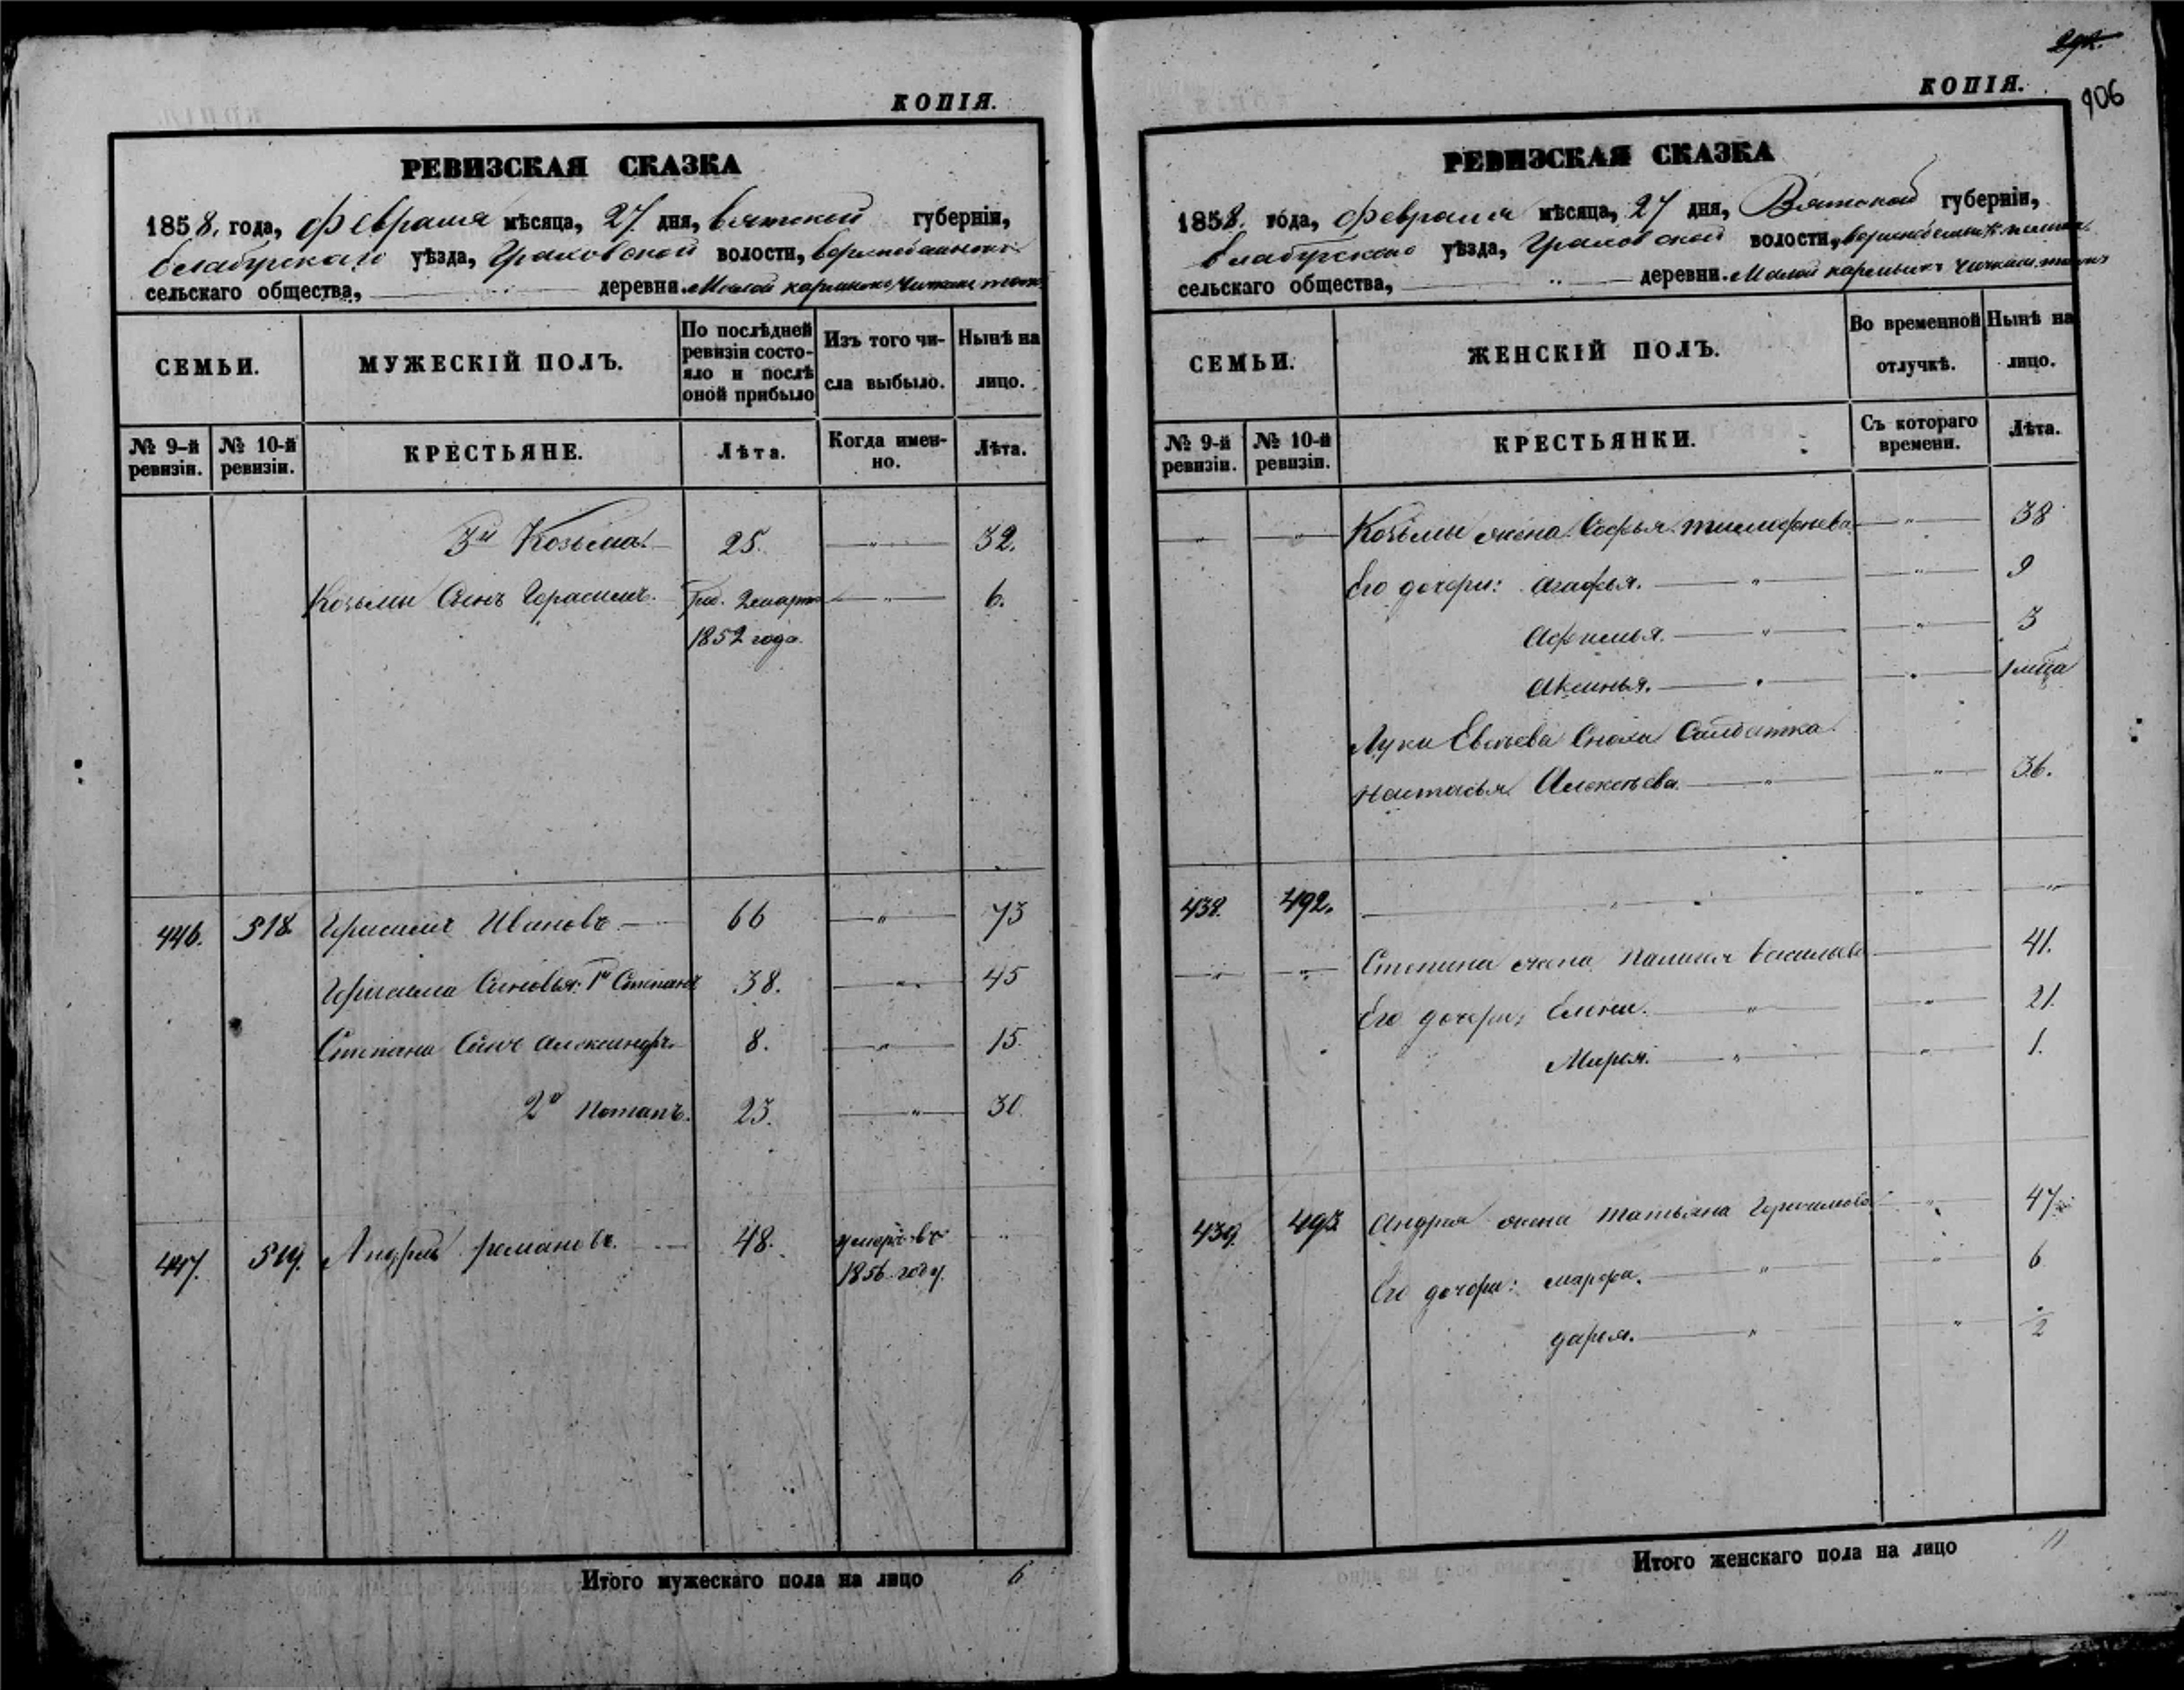 КОПІЯ.
РЕВИЗСКАЯ СКАЗКА
1858. года, февраля мѣсяца, 27 дня, Вятской губерніи,
Елабугскаго уѣзда, Граховской волости,
сельскаго общества, деревни Малой
СЕМЬИ.
МУЖЕСКІЙ ПОЛЪ.
По послѣдней ревизіи состояло и послѣ оной прибыло
Изъ того числа выбыло.
Нынѣ на лицо.
№ 9-й ревизіи.
№ 10-й ревизіи.
КРЕСТЬЯНЕ.
Лѣта.
Когда именно.
Лѣта.
3й Козьма. 25. 32.
Козьмы Сынъ Герасимъ. 6.
1852 года.
446. 518. Герасимъ Ивановъ 66 73
Герасима Сыновья: 1й Степанъ 38. 45
Степана Сынъ Александръ 8. 15
2й Потапъ. 23. 30.
447. 519. Андрей Романовъ. 48. умеръ въ
1856 году.
Итого мужескаго пола на лицо 6
906
КОПІЯ.
РЕВИЗСКАЯ СКАЗКА
1858. года, февраля мѣсяца, 27 дня, Вятской губерніи,
Елабугскаго уѣзда, Граховской волости,
сельскаго общества, деревни Малой
СЕМЬИ.
ЖЕНСКІЙ ПОЛЪ.
Во временной отлучкѣ.
Нынѣ на лицо.
№ 9-й ревизіи.
№ 10-й ревизіи.
КРЕСТЬЯНКИ.
Съ котораго времени.
Лѣта.
Козьмы жена Софья Тимофеева 38
Его дочери: Агафья. 9
Афимья. 3
Аксинья. 1
Луки Сноха Солдатка
Настасья Алексѣева 36.
438. 492.
Степана жена Васильева 41.
Его дочери: Елена. 21.
Марья. 1.
439. 493. Андрея жена Татьяна Герасимова 47
Его дочери: Марфа. 6
Дарья.
Итого женскаго пола на лицо 11